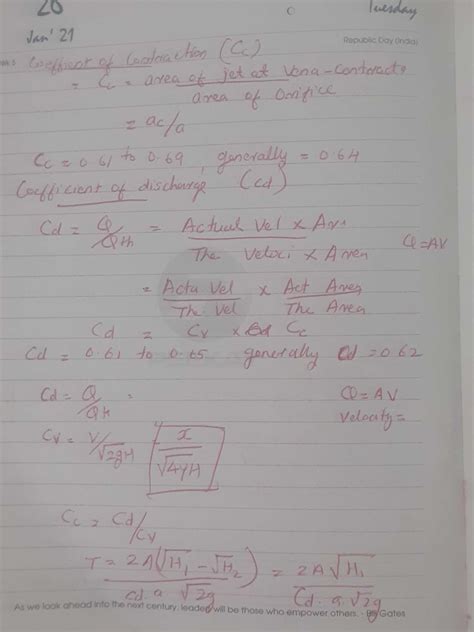 26
Tuesday
Jan' 21
Republic Day (India)
Coefficent of Contraction (Cc)
= Cc = area of jet at Vena-Contracta / area of Orifice
= ac/a
Cc = 0.61 to 0.69, generally = 0.64
Coefficient of discharge (Cd)
Cd = Q/Qth = Actual Vel x Are / The Veloci x Area
Q = AV
= Actu Vel / The Vel x Act Area / The Area
Cd = Cv x Cc
Cd = 0.61 to 0.65 generally Cd = 0.62
Cd = Q/Qth =
Q = AV
Velocity =
Cv = V/√2gH
x/√4yH
Cc = Cd/Cv
T = 2A(√H₁ - √H₂) / Cd. a √2g = 2A√H₁ / Cd. a. √2g
As we look ahead into the next century, leaders will be those who empower others. - Bill Gates